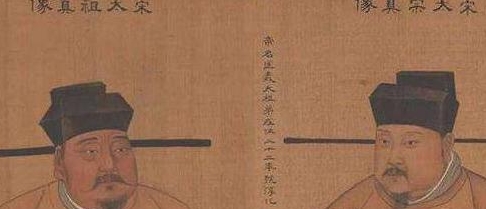 宋太宗真像
帝名匡義太祖弟在位二十二年號淳化
宋太祖真像